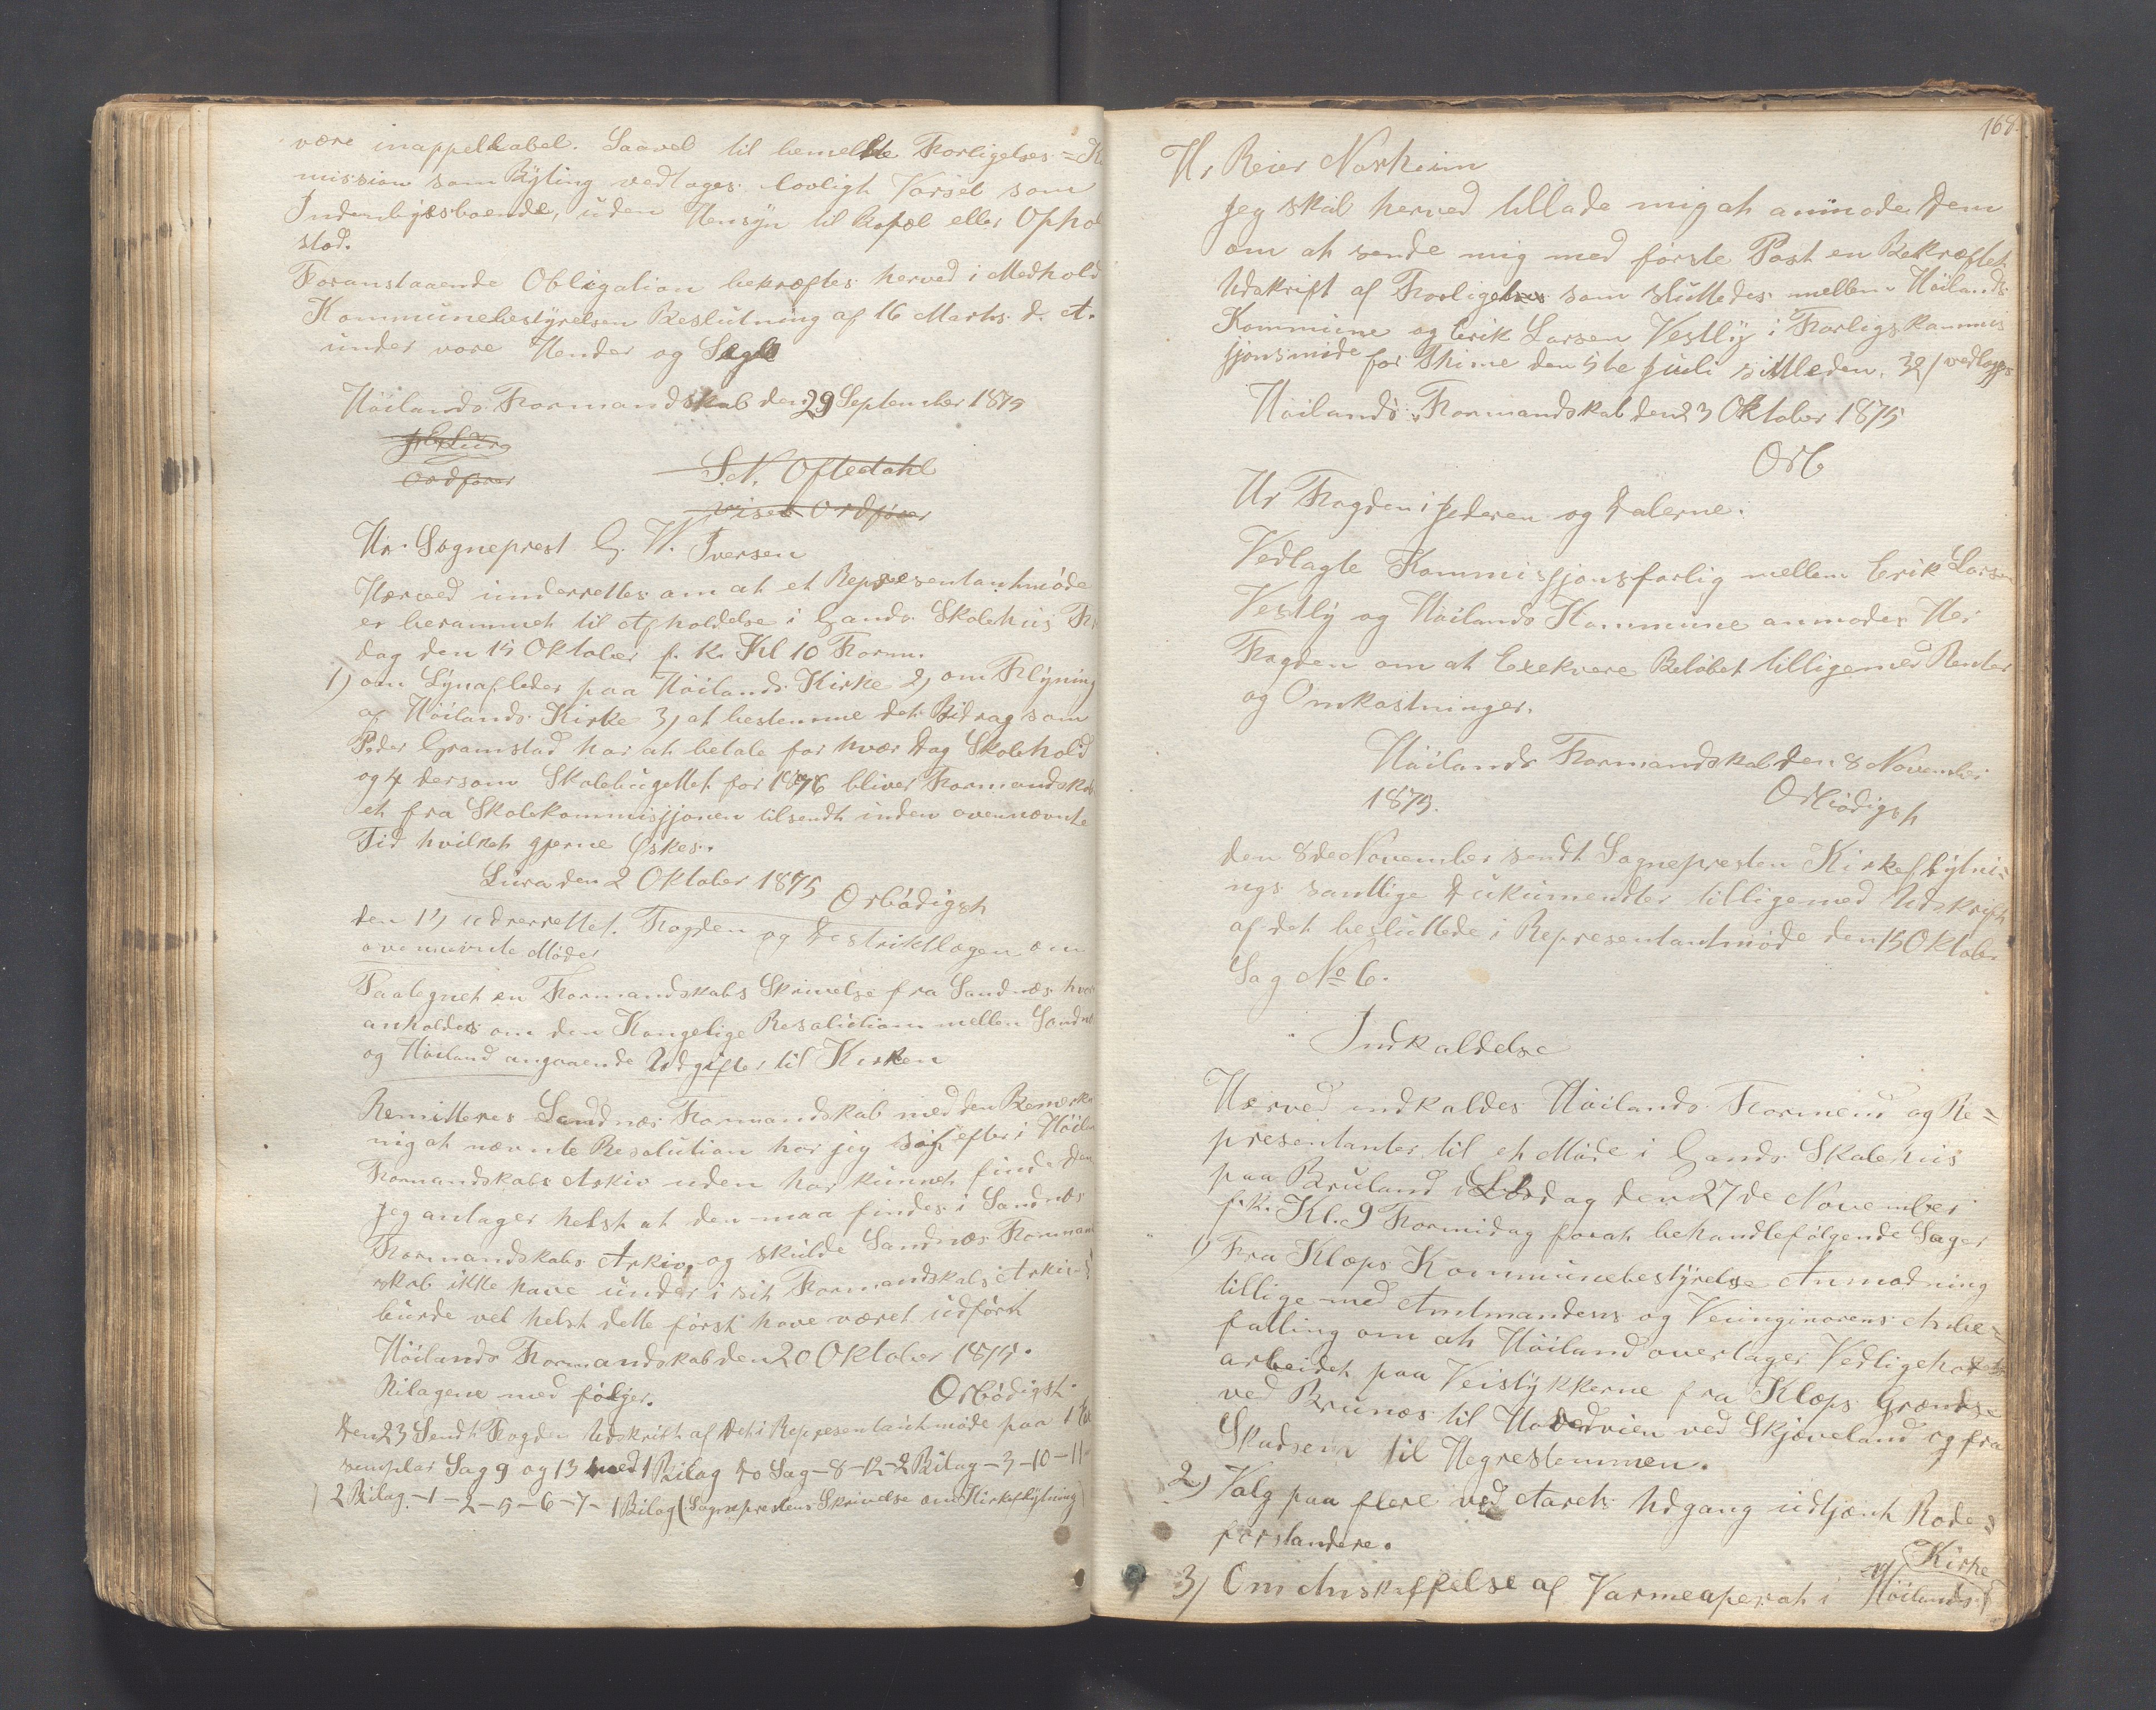 være inappellabel. Saavel til bemeldte Forligelses=K
mission som Byting vedtages lovligt Varsel som
Indenbysboende, uden Hensyn til Bopæl eller Ophol
sted.
Foranstaaende Obligation bekræftes herved i Medhold
Kommunebestyrelsen Beslutning af 16 Marts d. A.
under vore Hender og Segle
Höilands Formandskab den 29 September 1875
Ordförer
S. N. Oftedahl
vise Ordförer
Hr. Sogneprest G. W. Iversen
Herved underrettes om at et Representantmöde
er berammet til Afholdelse i Gands Skolehus Fr
dag den 15 Oktober f. k. Kl 10 Form.
1) om Lynafleder paa Höilands Kirke 2) om Flytning
af Höilands Kirke 3) at bestemme det Bidrag som
Peder Gramstad har at betale for hver Dag Skolehold
og 4 dersom Skolebugettet for 1876 bliver Formandskab
et fra Skolekommissjonen tilsendt inden ovennævnte
Tid hvilket gjerne Öskes.
Lura den 2 Oktober 1875
Orbödigst
den 12 undrerrettet. Fogden og Destriktlægen om
ovennævnte Möder
Paategnet en Formandskabs Skrivelse fra Sandnæs hvor
anholdes om den Kongelige Resolution mellem Sandnæ
og Höiland angaaende Udgifter til Kirken
Remitteres Sandnæs Formandskab med den Bemærk
ning at nævnte Resolution har jeg sögt efter i Höila
Formandskabs Arkiv uden har kunnet finde den
Jeg antager helst at den maa findes i Sandnæs
Formandskabs Arkiv, og skulde Sandnæs Forman
skab ikke have under i sit Formandskabs Arkiv s
burde vel helst dette först have været udfört
Höilands Formandskab den 20 Oktober 1875.
Bilagene med fölger.
Orbödigst.
Den 23 Sendt Fogden Udskrift af Det i Representantmöde paa 1 Ex
semplar Sag 9 og 13 med 1 Bilag do Sag - 8 - 12 - 2 Bilag - 3 - 10 - 11
2 Bilag - 1 - 2 - 5 - 6 - 7 - 1 Bilag (Sogneprestens Skrivelse om Kirkeflytning)
168.
Hr Reier Norheim
Jeg skal herved tillade mig at anmode Dem
om at sende mig med förste Post en Bekræftet
Udskrift af Forligelses som sluttedes mellem Höilands
Kommune og Erik Larsen Vestly i Forligskommis
sjonsmöde for Thime den 5te Juli sidtleden. 32/ vedlegges
Höilands Formandskab den 23 Oktober 1875
Orb
Hr Fogden i Jederen og Dalerne.
Vedlagte Kommissjonsforlig mellem Erik Larsen
Vestly og Höilands Kommune anmodes Her
Fogden om at Exekvere Belöbet tilligemed Renter
og Omkostninger.
Höilands Formandskab den 8 November
1875.
Orbödigst
den 8de November sendt Sognepresten Kirkeflytni=
ngs samtlige Dukumendter tilligemed Udskrift
af det besluttede i Representantmöde den 15 Oktober
Sag No 6.
Indkaldelse
Herved indkaldes Höilands Formend og Re=
presentanter til et Möde i Gands Skolehus
paa Bruland Lördag den 27de November
f. k. Kl. 9 Formidag forat behandle fölgende Sager
1) Fra Kleps Kommunebestyrelse Anmodning
tillige med Amtmandens og Veiinginörens Anbe=
faling om at Höiland overtager Vedligeholdels
arbeidet paa Veistykkerne fra Kleps Grændse
ved Brunæs til Hovedveien ved Skjæveland og fra
Skadsem til Hegrestemmen.
2) Valg paa flere ved Aarets Udgang udtjent Rode=
forstandere.
3) Om Anskaffelse af Varmeaperat i Höilands
Kirke